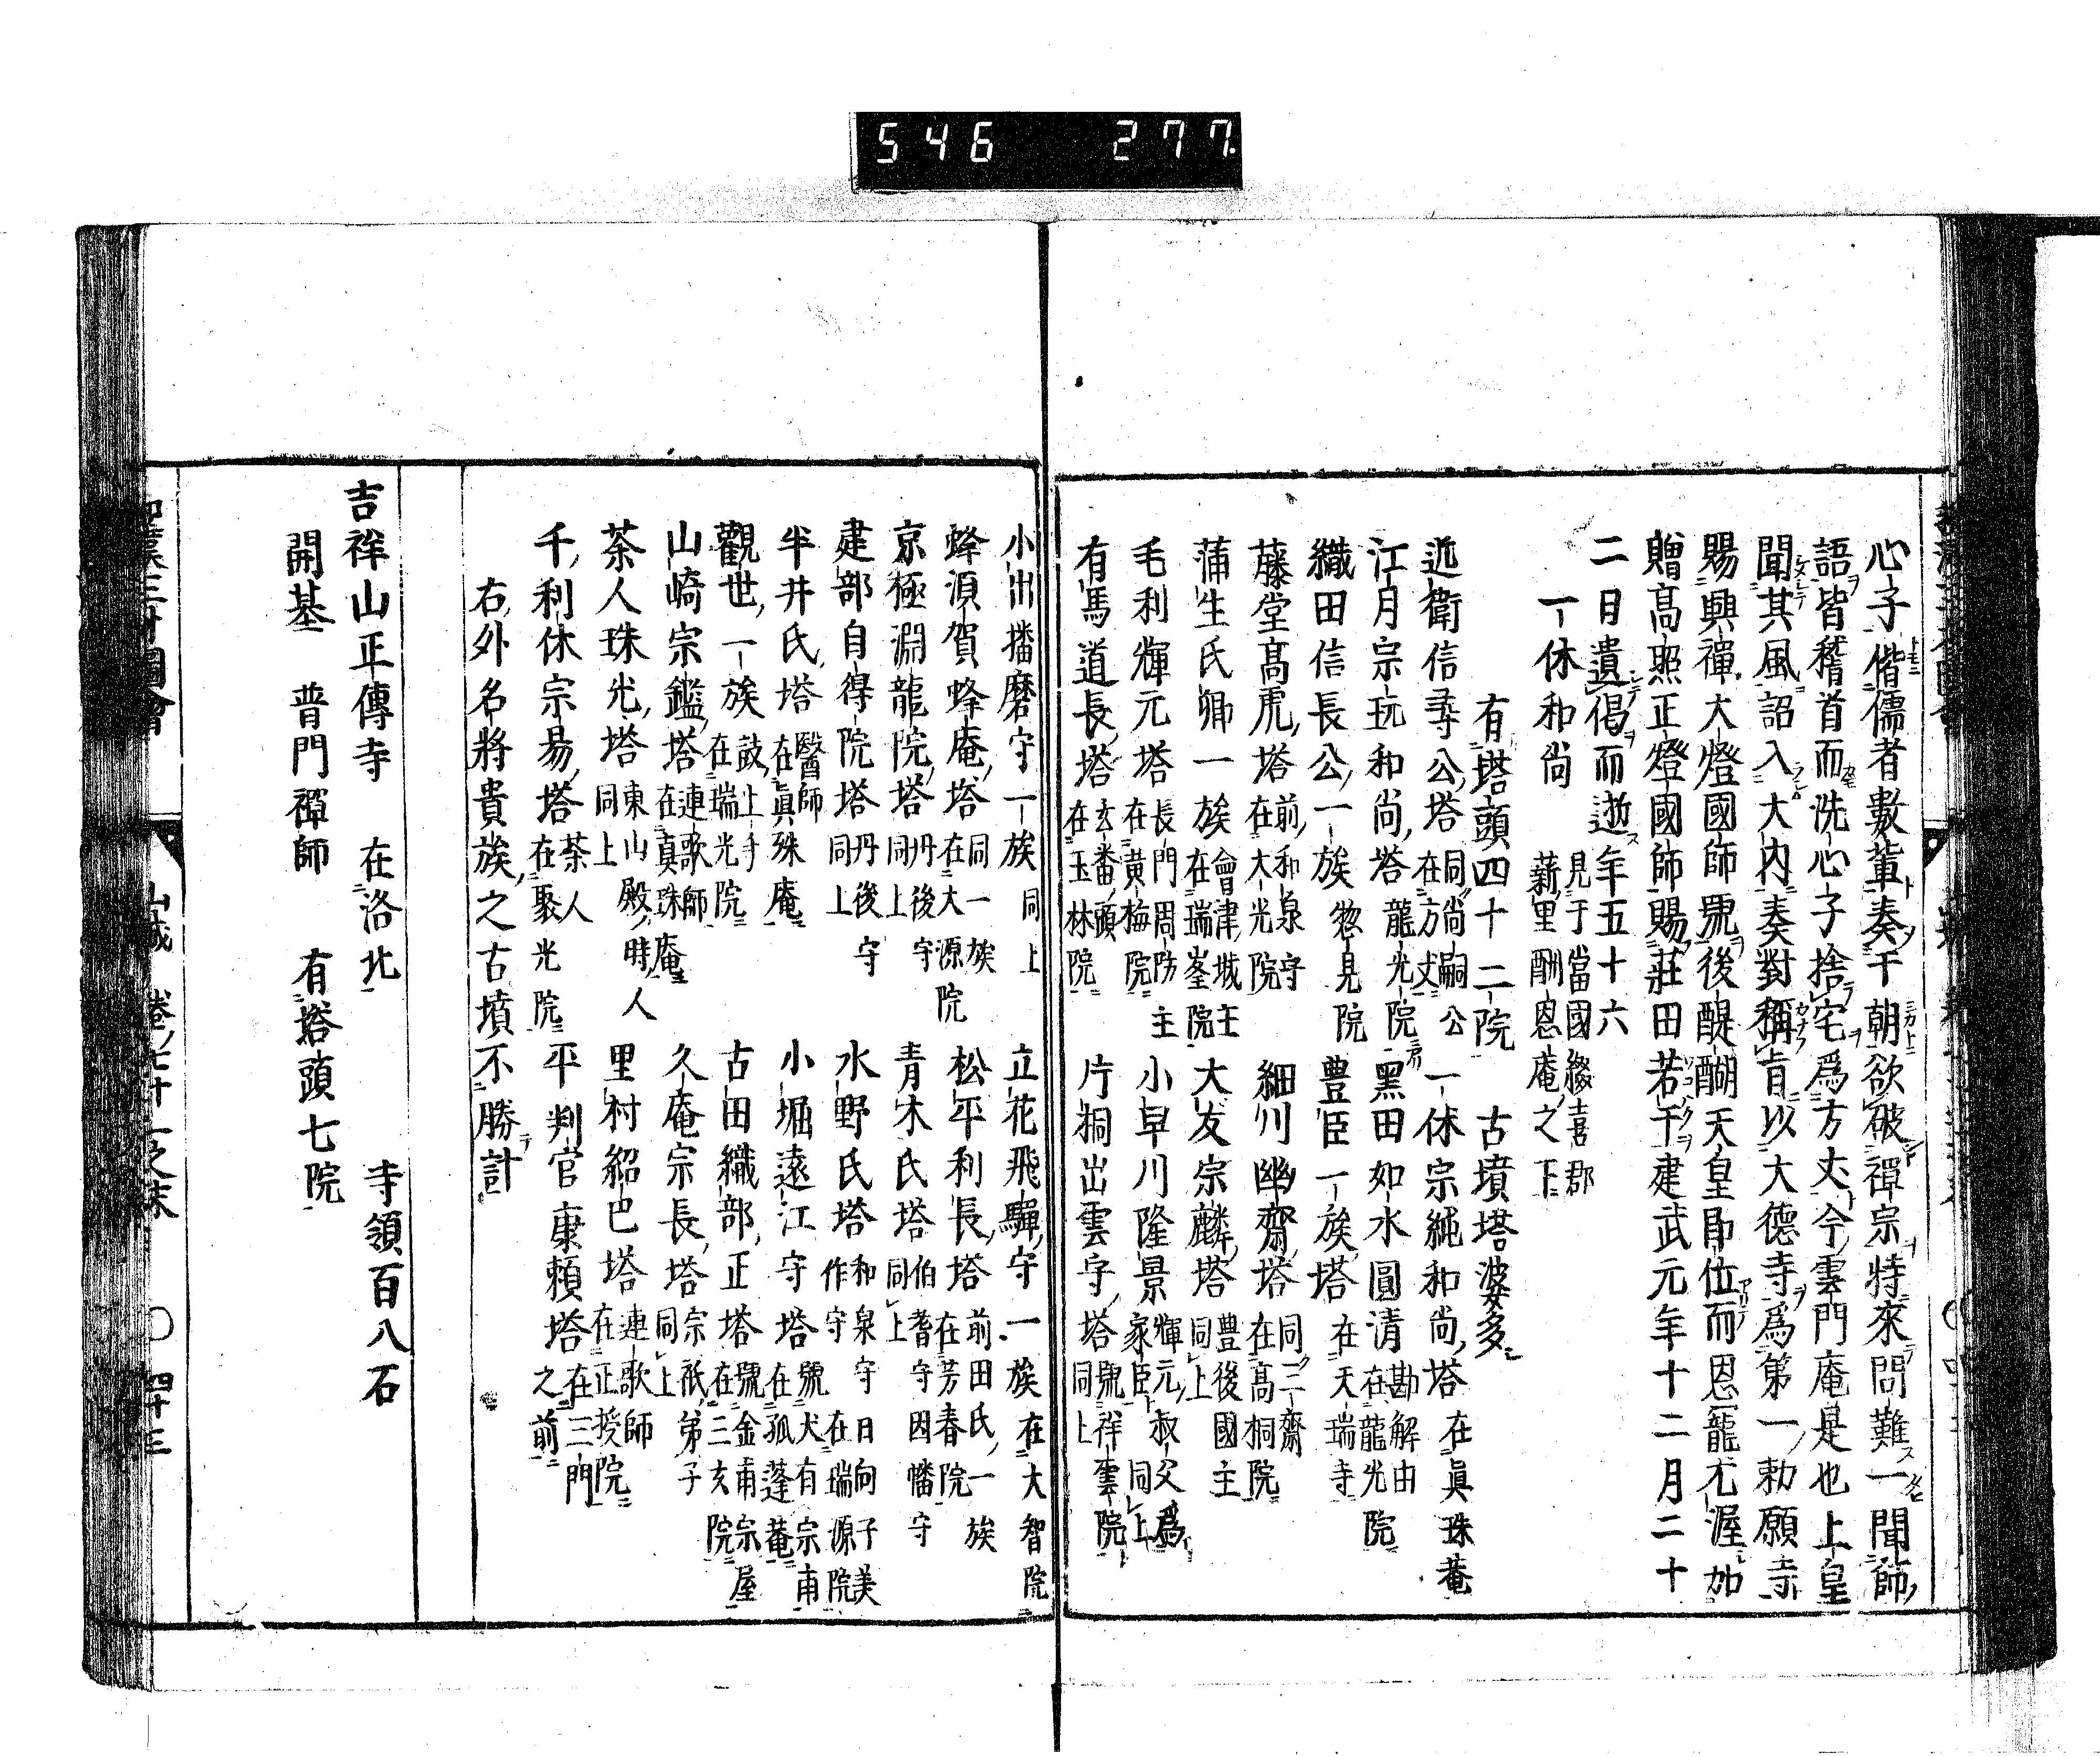 546 277
心子偕儒者數輩奏于朝欲破禪宗特來問難一聞師
語皆稽首而洗心子捨宅爲方丈今雲門庵是也上皇
聞其風詔入大内奏對稱旨以大德寺爲第一勅願寺
賜興禪大燈國師號後醍醐天皇即位而恩寵尤渥加
贈高照正燈國師賜莊田若干建武元年十二月二十
二日遺偈而逝年五十六
一休和尚 見于當國綴喜郡薪里酬恩庵之下
有塔頭四十二院 古墳塔婆多
近衛信尋公塔 同尚嗣公在方丈 一休宗純和尚塔 在眞珠菴
江月宗玩和尚塔 龍光院 黑田如水圓清 勘解由在龍光院
織田信長公一族 惣見院 豊臣一族塔 在天瑞寺
藤堂高虎塔 前和泉守在大光院 細川幽齋塔 同三齋在高桐院
蒲生氏郷一族 會津城主在瑞峯院 大友宗麟塔 豊後國主同上
毛利輝元塔 長門周防主在黄梅院 小早川隆景 輝元叔父爲家臣同上
有馬道長塔 玄番頭在玉林院 片桐出雲守塔 號祥雲院同上
小出播磨守一族 同上 立花飛驒守一族 在大智院
蜂須賀蜂庵塔 同一族在大源院 松平利長塔 前田氏一族在芳春院
京極淵龍院塔 丹後守同上 青木氏塔 伯耆守因幡守同上
建部自得院塔 丹後守同上 水野氏塔 和泉守日向子美作守在瑞源院
半井氏塔 醫師在眞殊庵 小堀遠江守塔 號犬有宗甫在孤蓬菴
觀世一族 鼓上手在瑞光院 古田織部正塔 號金甫宗屋在三玄院
山崎宗鑑塔 連歌師在真珠庵 久庵宗長塔 宗祇弟子同上
茶人珠光塔 東山殿時人同上 里村紹巴塔 連歌師在正授院
千利休宗易塔 茶人在聚光院 平判官康頼塔 在三門之前
右外名將貴族之古墳不勝計
吉祥山正傳寺 在洛北 寺領百八石
開基 普門禪師 有塔頭七院
山城 卷七十二之末 〇 四十三